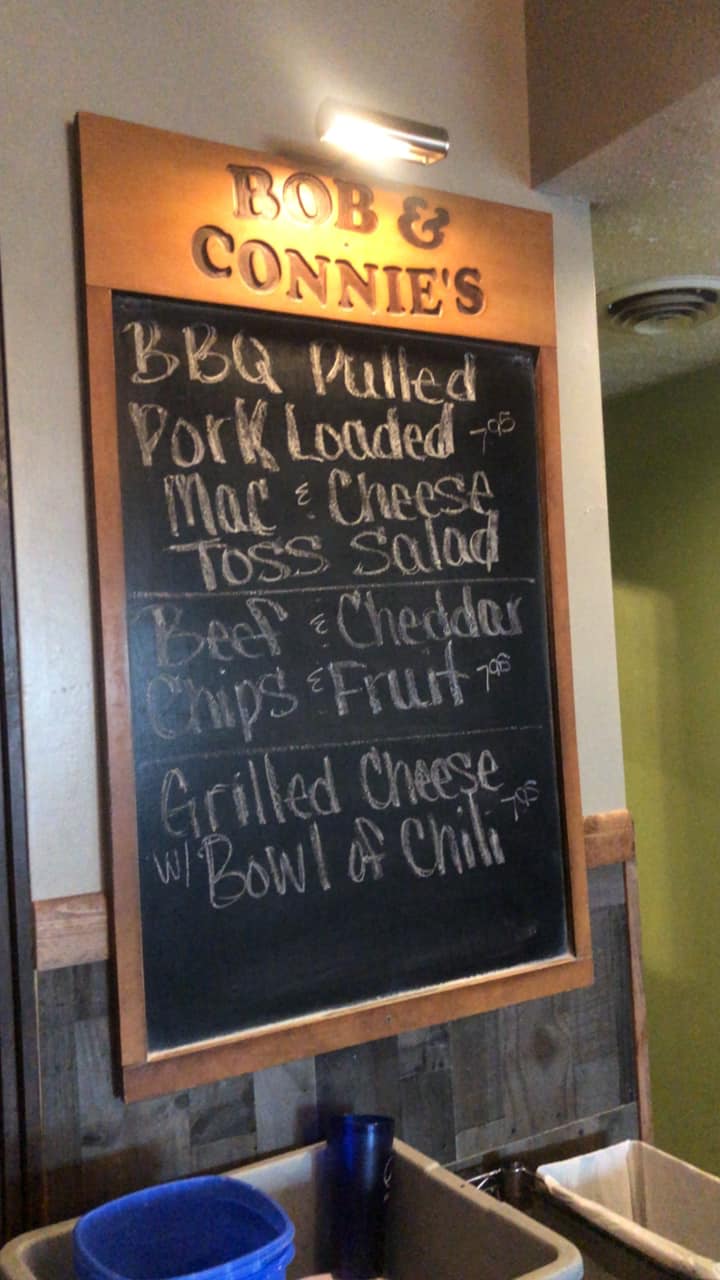 BOB &
CONNIE'S
BBQ Pulled
Pork Loaded 7.95
Mac & Cheese
Toss Salad
Beef & Cheddar
Chips & Fruit 7.95
Grilled Cheese
w/ Bowl of Chili 7.95